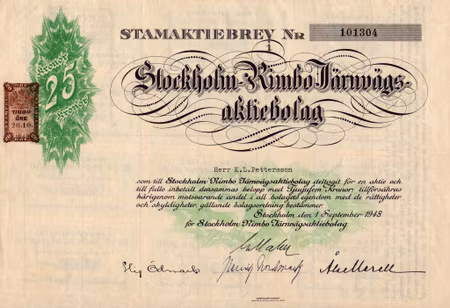 STAMAKTIEBREV Nr 101304
Kronor
25
TJUGO
ÖRE
Stockholm-Rimbo Järnvägs-
aktiebolag
Herr K.L.Pettersson
som till Stockholm-Rimbo Järnvägsaktiebolag deltagit för en aktie och
till fullo inbetalt densammas belopp med Tjugufem Kronor tillförsäkras
härigenom motsvarande andel i all bolagets egendom med de rättigheter
och skyldigheter gällande bolagsordning bestämmer.
Stockholm den 1 September 1948
för Stockholm-Rimbo Järnvägsaktiebolag